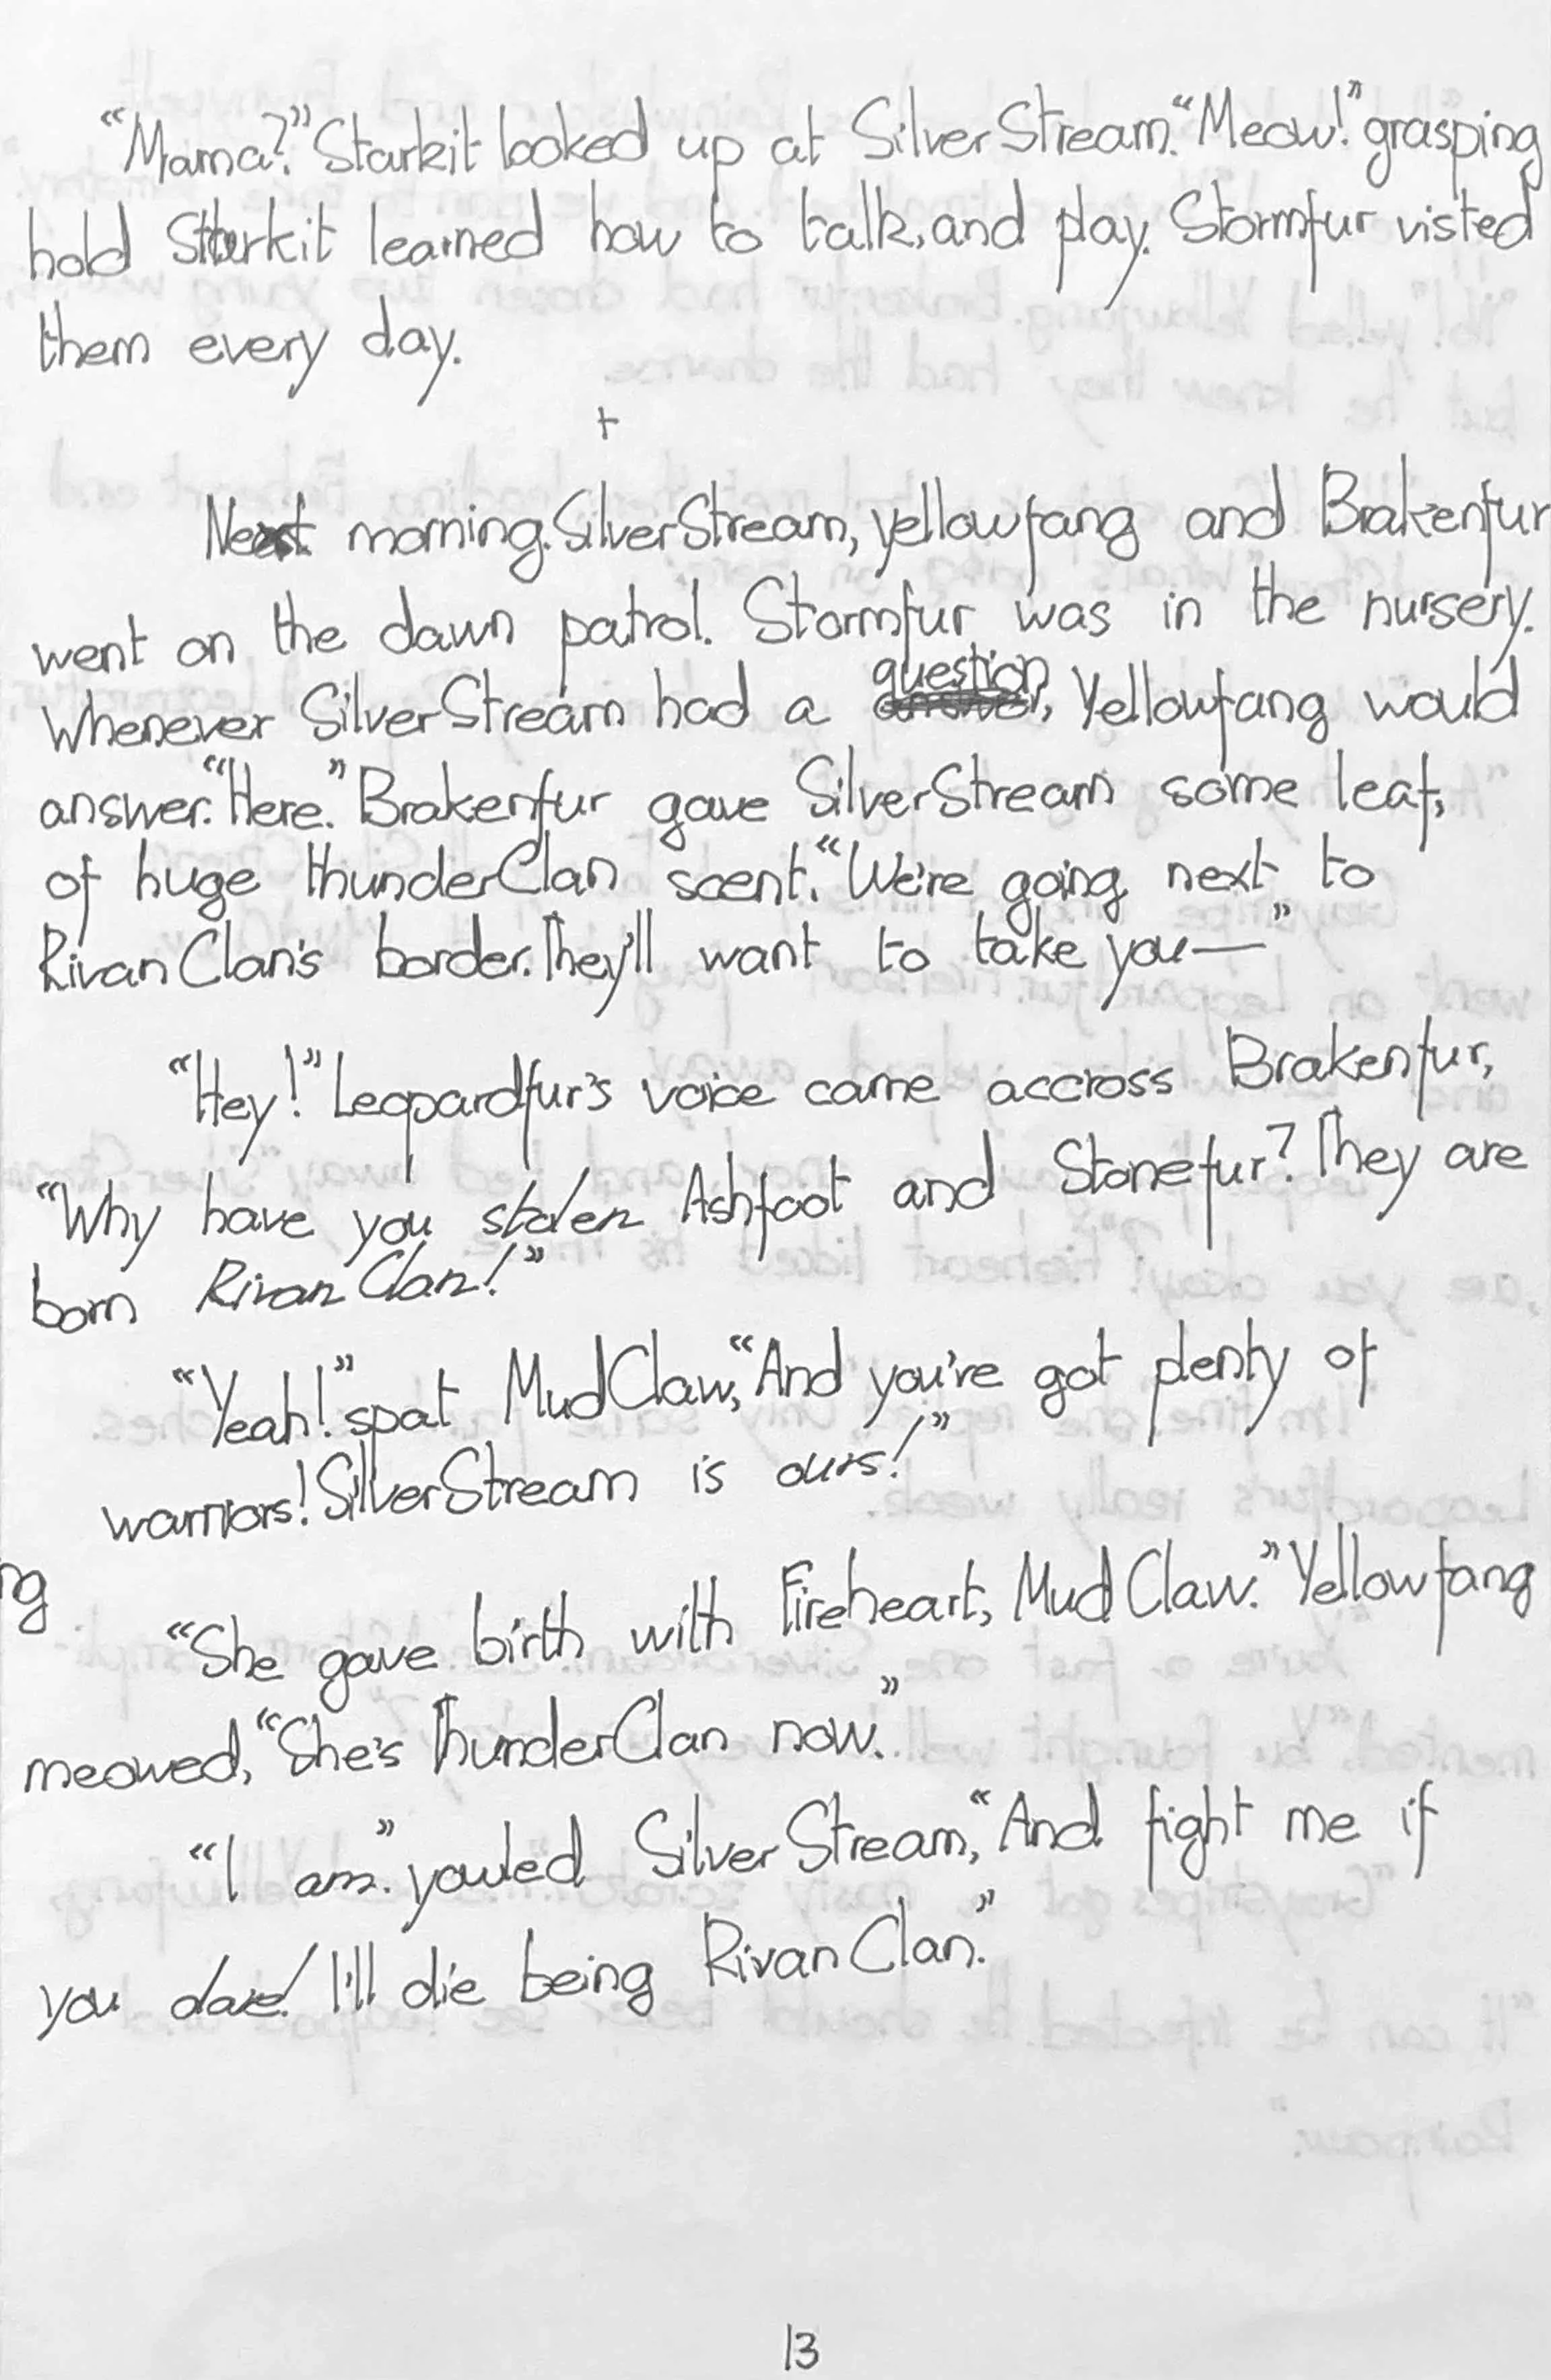 “Mama?” Starkit looked up at SilverStream. “Meow!” grasping
hold Starkit learned how to talk, and play. Stormfur visted
them every day.
+
Next morning. SilverStream, yellowfang and Brakenfur
went on the dawn patrol. Stormfur was in the nursery.
Whenever SilverStream had a question, Yellowfang would
answer. “Here.” Brakenfur gave SilverStream some leaf,
of huge thunderClan scent. “We're going next to
RivanClan's border. They'll want to take you—”
“Hey!” Leopardfur's voice came accross Brakenfur,
“Why have you stolen Ashfoot and Stonefur? They are
born RivanClan!”
“Yeah!” spat MudClaw, “And you've got plenty of
warriors! SilverStream is ours!”
ng
“She gave birth with Fireheart, MudClaw.” Yellowfang
meowed, “She's ThunderClan now.”
“I am.” yowled SilverStream, “And fight me if
you dare! I'll die being RivanClan.”
13